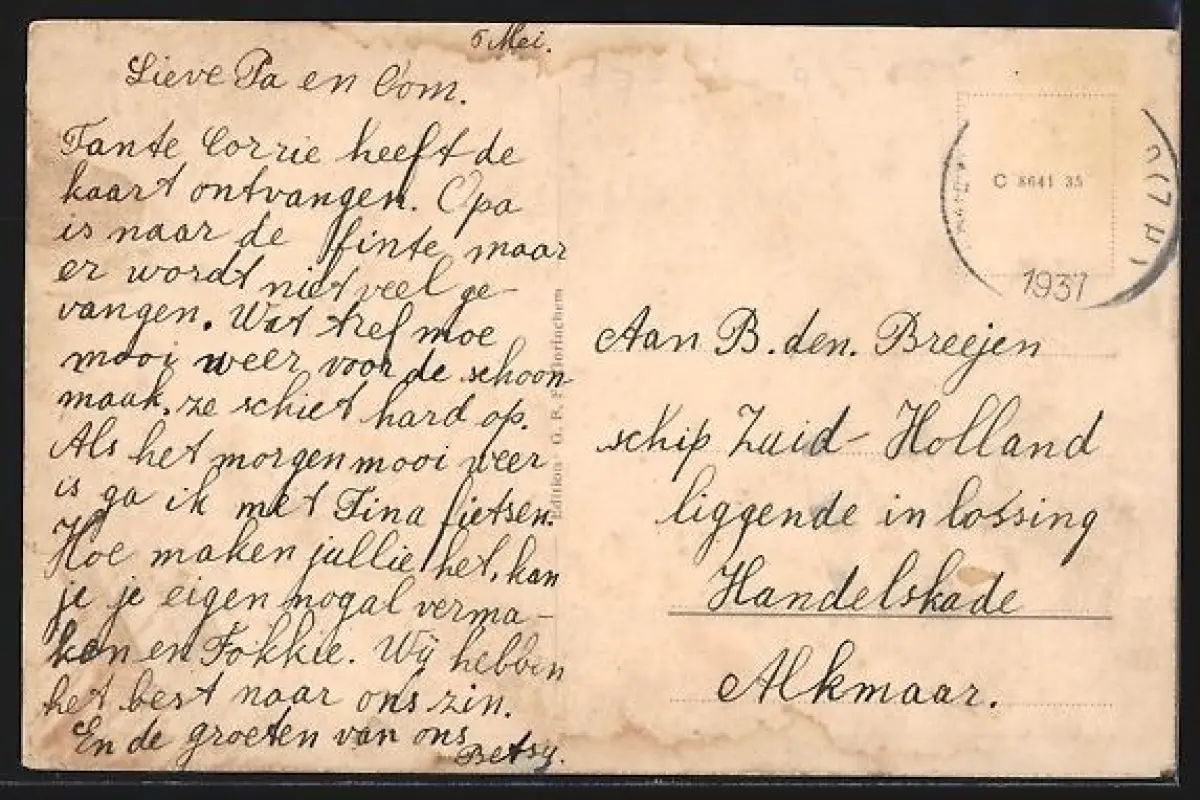 5 Mei.
Lieve Pa en Oom.
Tante Corrie heeft de
kaart ontvangen. Opa
is naar de finte maar
er wordt niet veel ge-
vangen. Wat tref moe
mooi weer voor de schoon
maak. ze schiet hard op.
Als het morgen mooi weer
is ga ik met Tina fietsen.
Hoe maken jullie het, kan
je je eigen nogal verma-
ken en Fokkie. Wij hebben
het best naar ons zin.
En de groeten van ons
Betsy.
Edition G. F.
C 8641 35
1937
Aan B. den. Breejen
schip Zuid-Holland
liggende in lossing
Handelskade
Alkmaar.